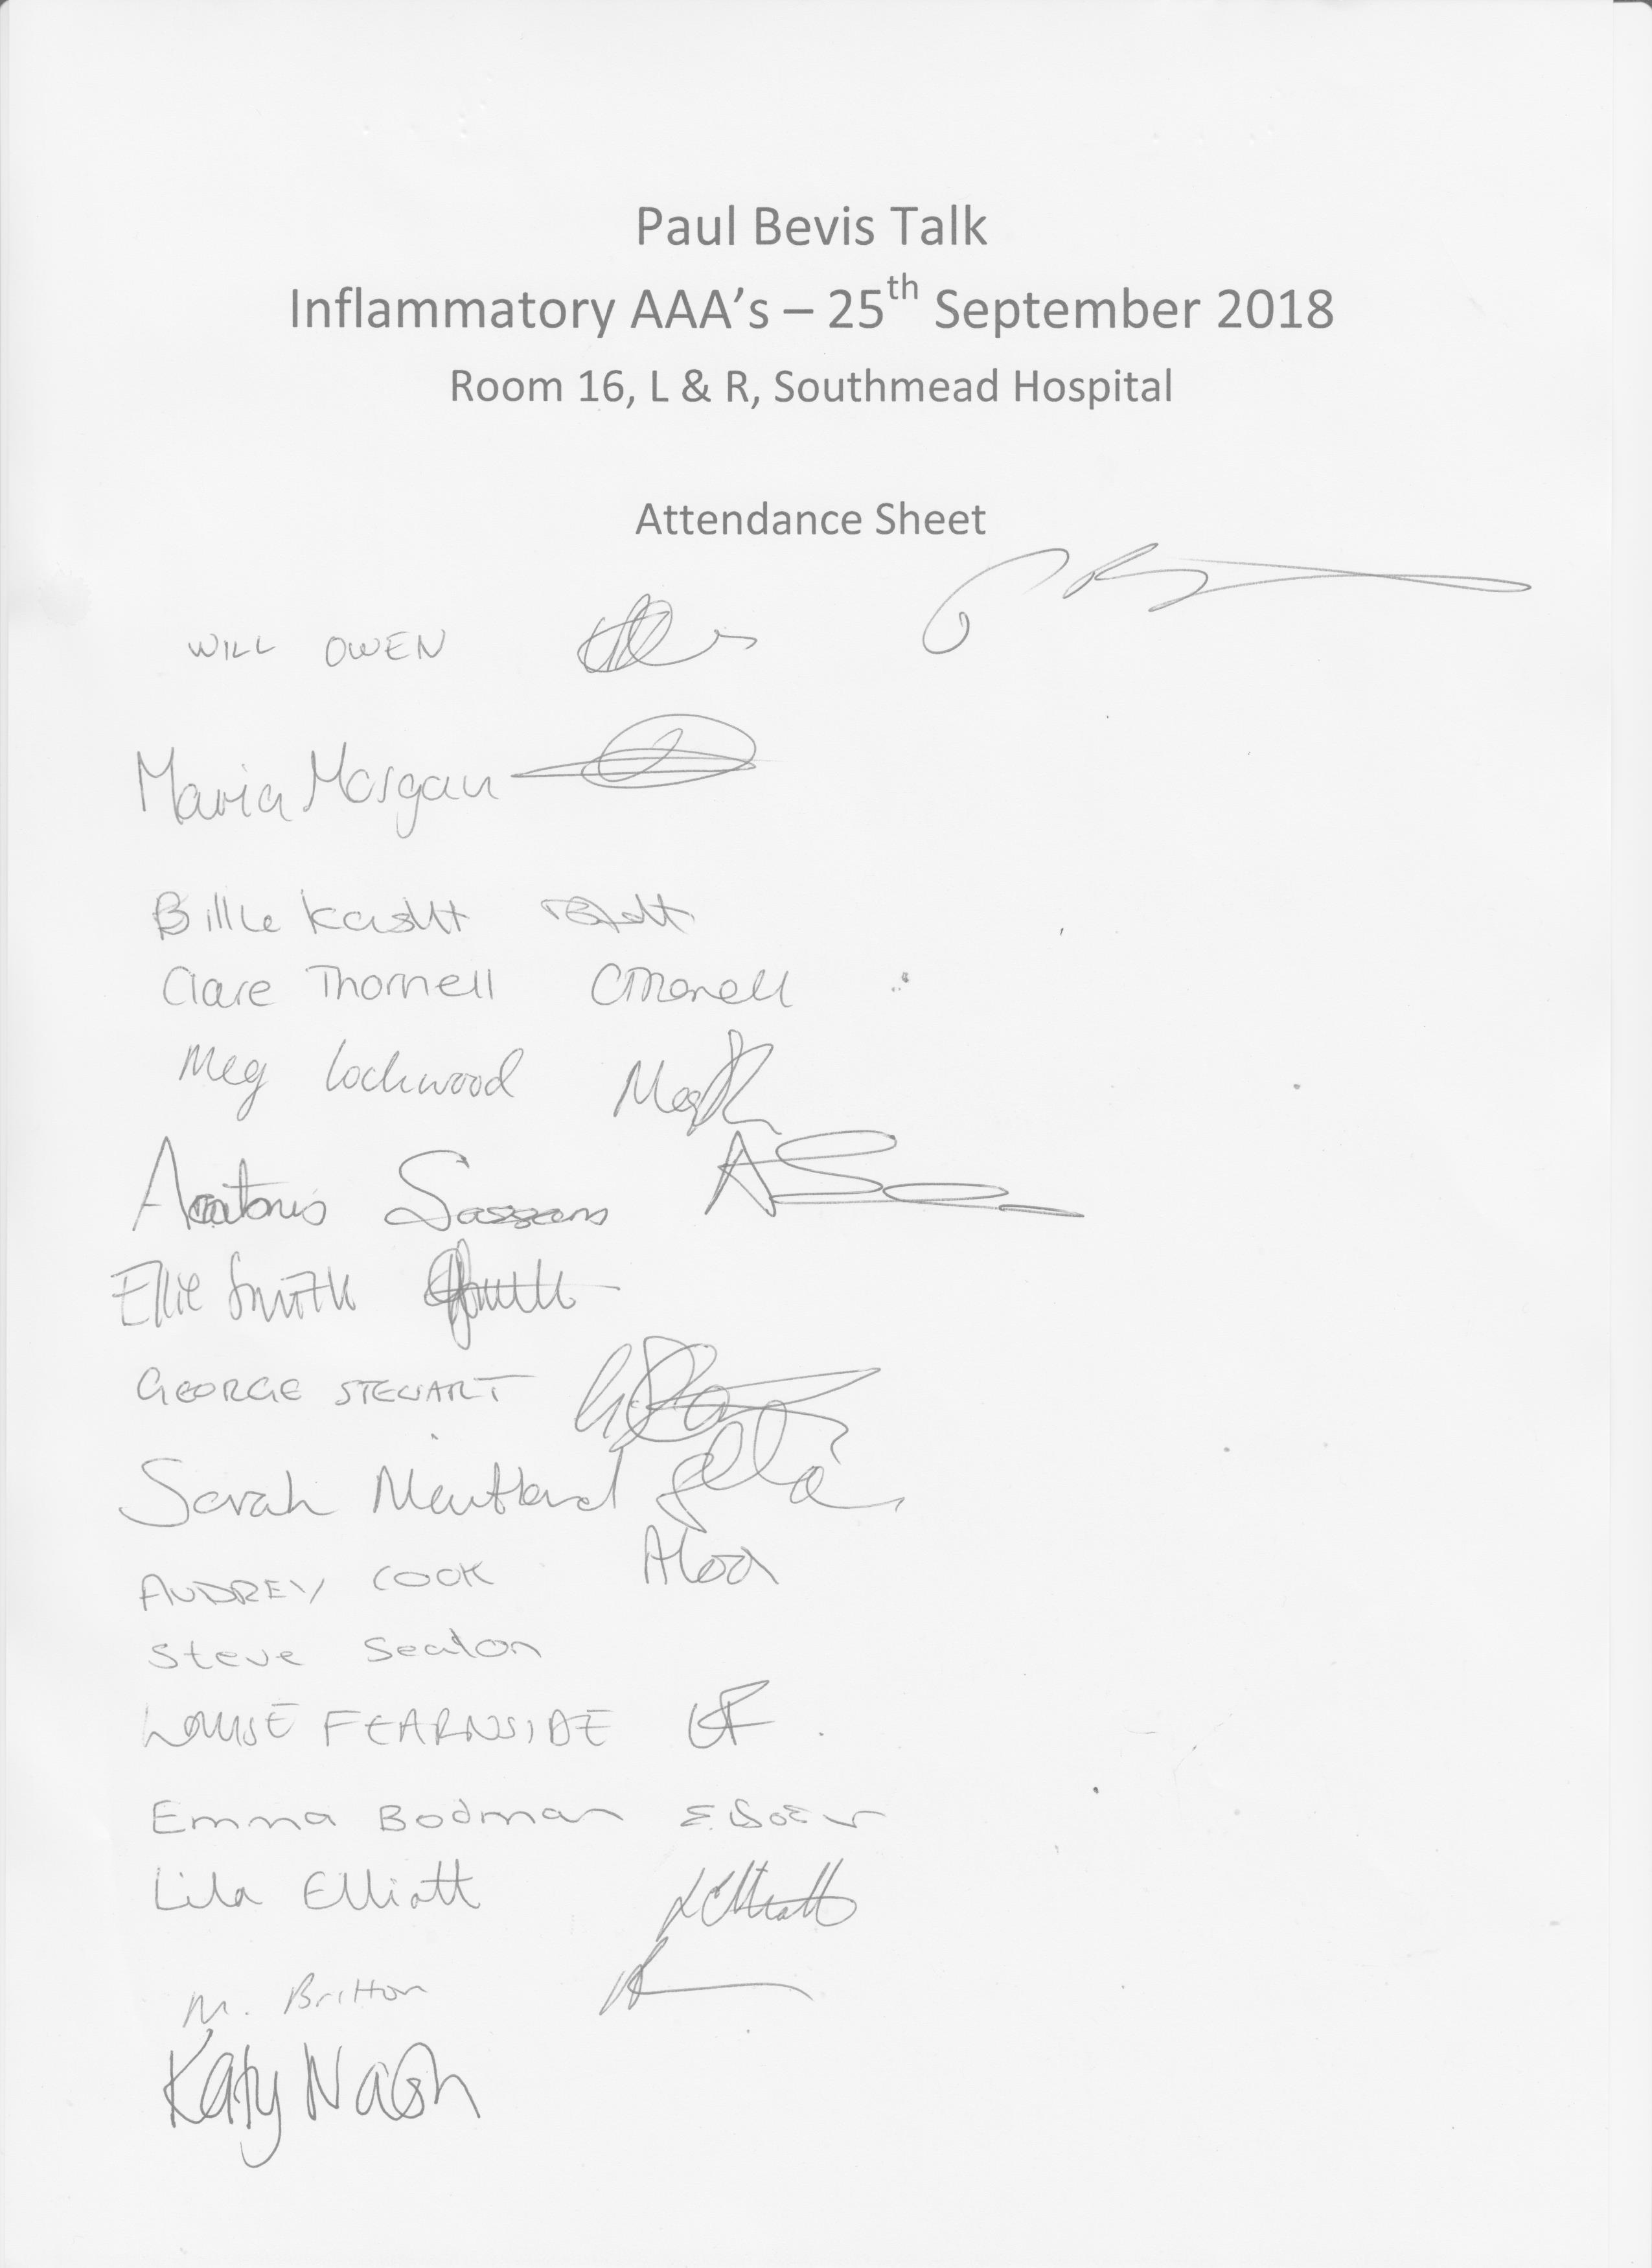 Paul Bevis Talk
Inflammatory AAA's – 25th September 2018
Room 16, L & R, Southmead Hospital
Attendance Sheet
WILL OWEN
Maria Morgan
Billie
Clare Thornell CThornell
Meg Lockwood Meg
Antonis
Ellie Smith
GEORGE STEWART
Sarah
AUDREY COOK
Steve Seaton
LOUISE FEARNSIDE LF
Emma Bodman
Lila Elliott LElliott
M. Britton
Katy Nash